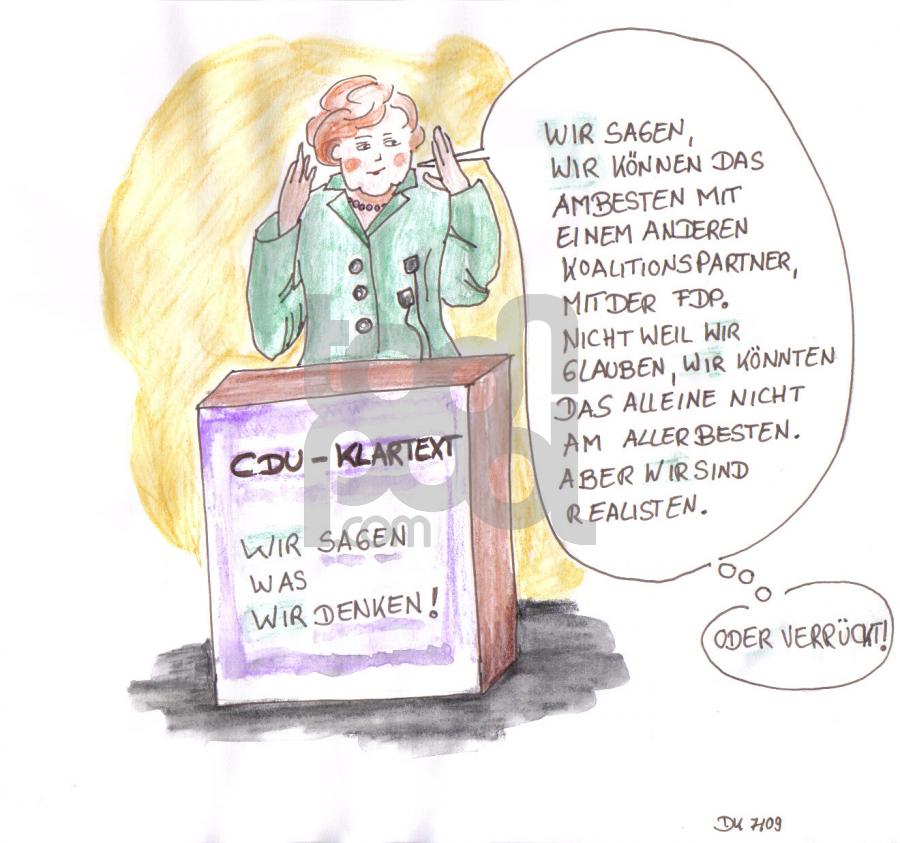 WIR SAGEN,
WIR KÖNNEN DAS
AMBESTEN MIT
EINEM ANDEREN
KOALITIONSPARTNER,
MIT DER FDP.
NICHT WEIL WIR
GLAUBEN, WIR KÖNNTEN
DAS ALLEINE NICHT
AM ALLERBESTEN.
ABER WIR SIND
REALISTEN.
ODER VERRÜCKT!
CDU - KLARTEXT
WIR SAGEN
WAS
WIR DENKEN!
toon
pool
.com
DM 7/09